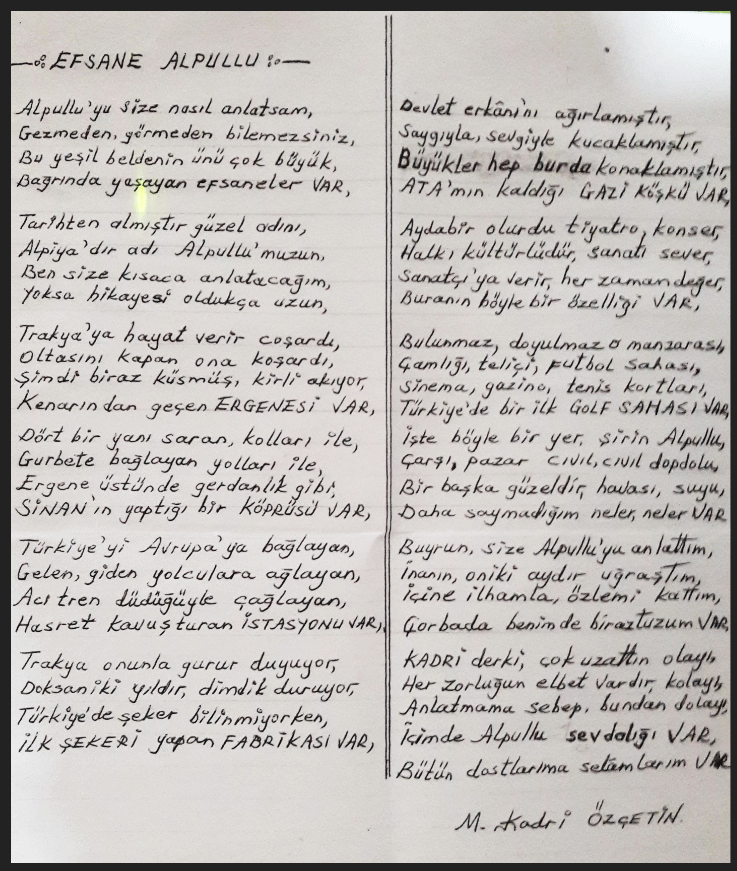 EFSANE ALPULLU
Alpullu'yu size nasıl anlatsam,
Gezmeden, görmeden bilemezsiniz,
Bu yeşil beldenin ünü çok büyük,
Bağrında yaşayan efsaneler VAR,
Tarihten almıştır güzel adını,
Alpiya'dır adı Alpullu'muzun,
Ben size kısaca anlatacağım,
Yoksa hikayesi oldukça uzun,
Trakya'ya hayat verir coşardı,
Oltasını kapan ona koşardı,
Şimdi biraz küsmüş, kirli akıyor,
Kenarından geçen ERGENESİ VAR,
Dört bir yanı saran, kolları ile,
Gurbete bağlayan yolları ile,
Ergene üstünde gerdanlık gibi,
SİNAN'ın yaptığı bir KÖPRÜSÜ VAR,
Türkiye'yi Avrupa'ya bağlayan,
Gelen, giden yolculara ağlayan,
Acı tren düdüğüyle çağlayan,
Hasret kavuşturan İSTASYONU VAR,
Trakya onunla gurur duyuyor,
Doksaniki yıldır, dimdik duruyor,
Türkiye'de şeker bilinmiyorken,
İLK ŞEKERİ yapan FABRİKASI VAR,
Devlet erkânı'nı ağırlamıştır,
Saygıyla, sevgiyle kucaklamıştır,
Büyükler hep burda konaklamıştır,
ATA'mın kaldığı GAZİ KÖŞKÜ VAR,
Aydabir olurdu tiyatro, konser,
Halkı kültürlüdür, sanatı sever,
Sanatçı'ya verir, her zaman değer,
Buranın böyle bir özelliği VAR,
Bulunmaz, doyulmaz o manzarası,
Çamlığı, teliçi, futbol sahası,
Sinema, gazino, tenis kortları,
Türkiye'de bir ilk GOLF SAHASI VAR,
İşte böyle bir yer, şirin Alpullu,
Çarşı, pazar cıvıl, cıvıl dopdolu,
Bir başka güzeldir, havası, suyu,
Daha saymadığım neler, neler VAR
Buyrun, size Alpullu'yu anlattım,
İnanın, oniki aydır uğraştım,
İçine ilhamla, özlemi kattım,
Çorbada benim de biraz tuzum VAR,
KADRİ derki, çok uzattın olayı,
Her zorluğun elbet vardır, kolayı,
Anlatmama sebep, bundan dolayı,
İçimde Alpullu sevdalığı VAR,
Bütün dostlarıma selamlarım VAR
M. Kadri ÖZÇETİN